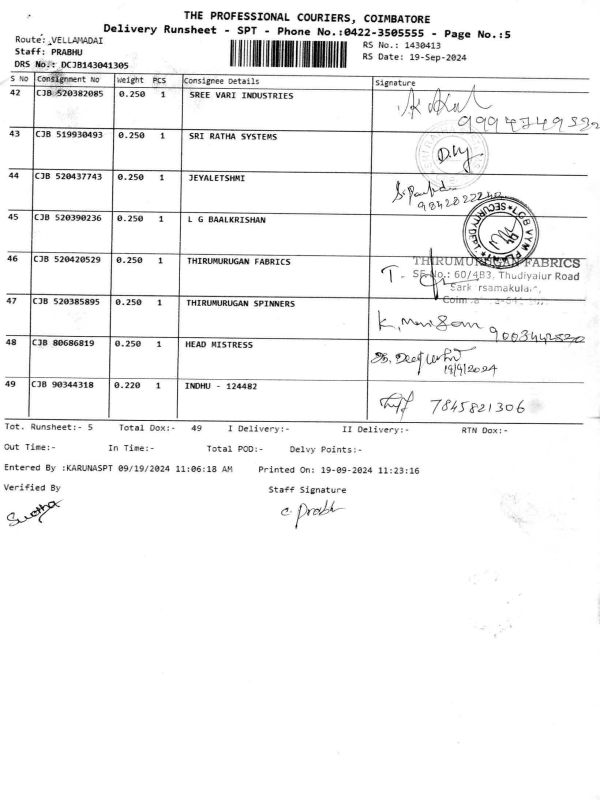 THE PROFESSIONAL COURIERS, COIMBATORE
Delivery Runsheet - SPT - Phone No.:0422-3505555 - Page No.:5
Route: VELLAMADAI
RS No.: 1430413
Staff: PRABHU
RS Date: 19-Sep-2024
DRS No.: DCJB143041305
S No Consignment No Weight PCS Consignee Details Signature
42 CJB 520382085 0.250 1 SREE VARI INDUSTRIES
43 CJB 519930493 0.250 1 SRI RATHA SYSTEMS
44 CJB 520437743 0.250 1 JEYALETSHMI
45 CJB 520390236 0.250 1 L G BAALKRISHAN
SECURITY DEPT
46 CJB 520420529 0.250 1 THIRUMURUGAN FABRICS
THIRUMURUGAN FABRICS
SF No.: 60/4B3, Thudiyalur Road
47 CJB 520385895 0.250 1 THIRUMURUGAN SPINNERS
K. Murugan
48 CJB 80686819 0.250 1 HEAD MISTRESS
19/9/2024
49 CJB 90344318 0.220 1 INDHU - 124482
7845821306
Tot. Runsheet:- 5 Total Dox:- 49 I Delivery:- II Delivery:- RTN Dox:-
Out Time:- In Time:- Total POD:- Delvy Points:-
Entered By :KARUNASPT 09/19/2024 11:06:18 AM Printed On: 19-09-2024 11:23:16
Verified By Staff Signature
Sujatha C. Prabhu